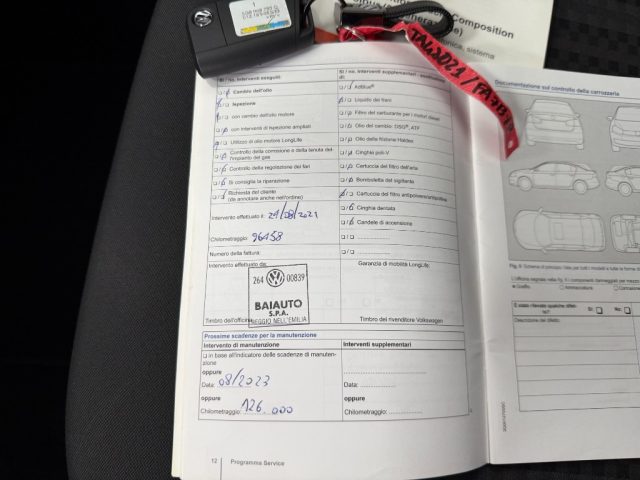 1
Composition
TAV2021
Sì / no, Interventi eseguiti
Cambio dell'olio
Ispezione
con cambio dell'olio motore
con interventi di ispezione ampliati
Utilizzo di olio motore LongLife
Controllo della corrosione e della tenuta dell'impianto del gas
Controllo della regolazione dei fari
Si consiglia la riparazione
Richiesta del cliente
(da annotare anche nell'ordine)
Intervento effettuato il: 24/08/2021
Chilometraggio: 96458
Numero della fattura:
Intervento effettuato da:
264 00839
BAIAUTO
S.P.A.
REGGIO NELL'EMILIA
Timbro dell'officina
Sì / no, Interventi supplementari
Adblue®
Liquido dei freni
Filtro del carburante per i motori diesel
Olio del cambio: DSG®, ATF
Olio della frizione Haldex
Cinghia poli-V
Cartuccia del filtro dell'aria
Bomboletta del sigillante
Cartuccia del filtro antipolvere/antipolline
Cinghia dentata
Candele di accensione
Garanzia di mobilità LongLife:
Timbro del rivenditore Volkswagen
Prossime scadenze per la manutenzione
Intervento di manutenzione
in base all'indicatore delle scadenze di manutenzione
oppure
Data: 08/2023
oppure
Chilometraggio: 126.000
Interventi supplementari
oppure
Data:
oppure
Chilometraggio:
12 Programma Service
Documentazione sul controllo della carrozzeria
Descrizione del difetto: